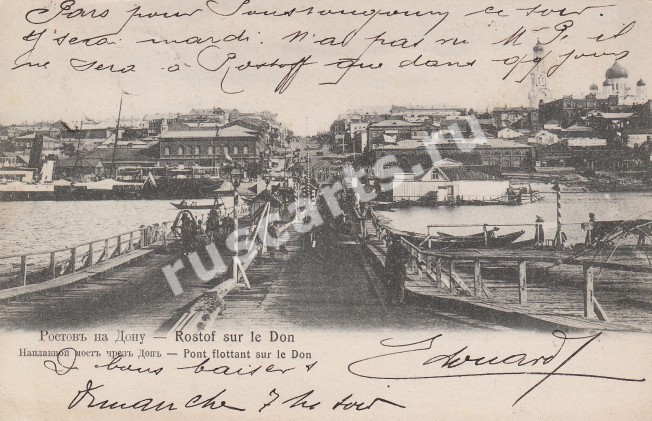 Pars pour Constongouny ce soir.
J'y serai mardi. N'ai pas vu Mr P, il
ne sera à Rostoff que dans qq jours
rustarts.ru
Ростовъ на Дону — Rostof sur le Don
Наплавной мостъ чрезъ Донъ — Pont flottant sur le Don
bons baisers
Edouard
Dimanche 7 h soir